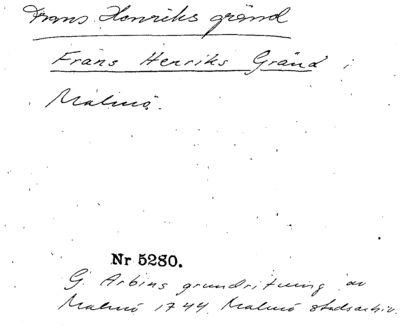 Frans Henriks gränd
Frans Henriks Gränd i
Malmö.
Nr 5280.
G. Arbins grundritning av
Malmö 1744. Malmö stadsarkiv.